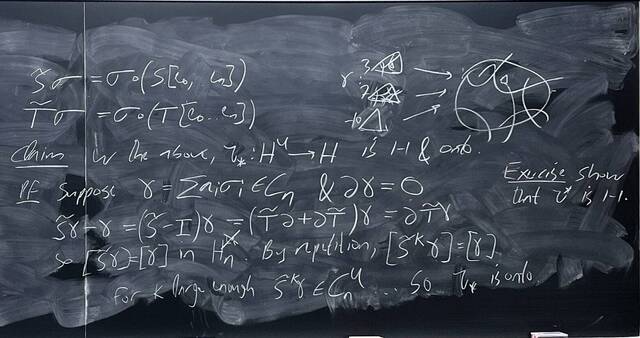 S̃σ = σ∘(S[e₀, eₙ])
T̃σ = σ∘(T[e₀..eₙ])
γ: 3
2
-10
Claim In the above, τ_*: H^U → H is 1-1 & onto.
Pf Suppose γ = Σaᵢσᵢ ∈ Cₙ & ∂γ = 0
S̃γ-γ = (S̃-I)γ = (T̃∂+∂T̃)γ = ∂T̃γ
so [S̃γ]=[γ] in Hₙ^X. By repetition, [S̃ᵏγ]=[γ].
For k large enough S̃ᵏγ ∈ Cₙ^U ... So τ_* is onto
Exercise show
that τ_* is 1-1.